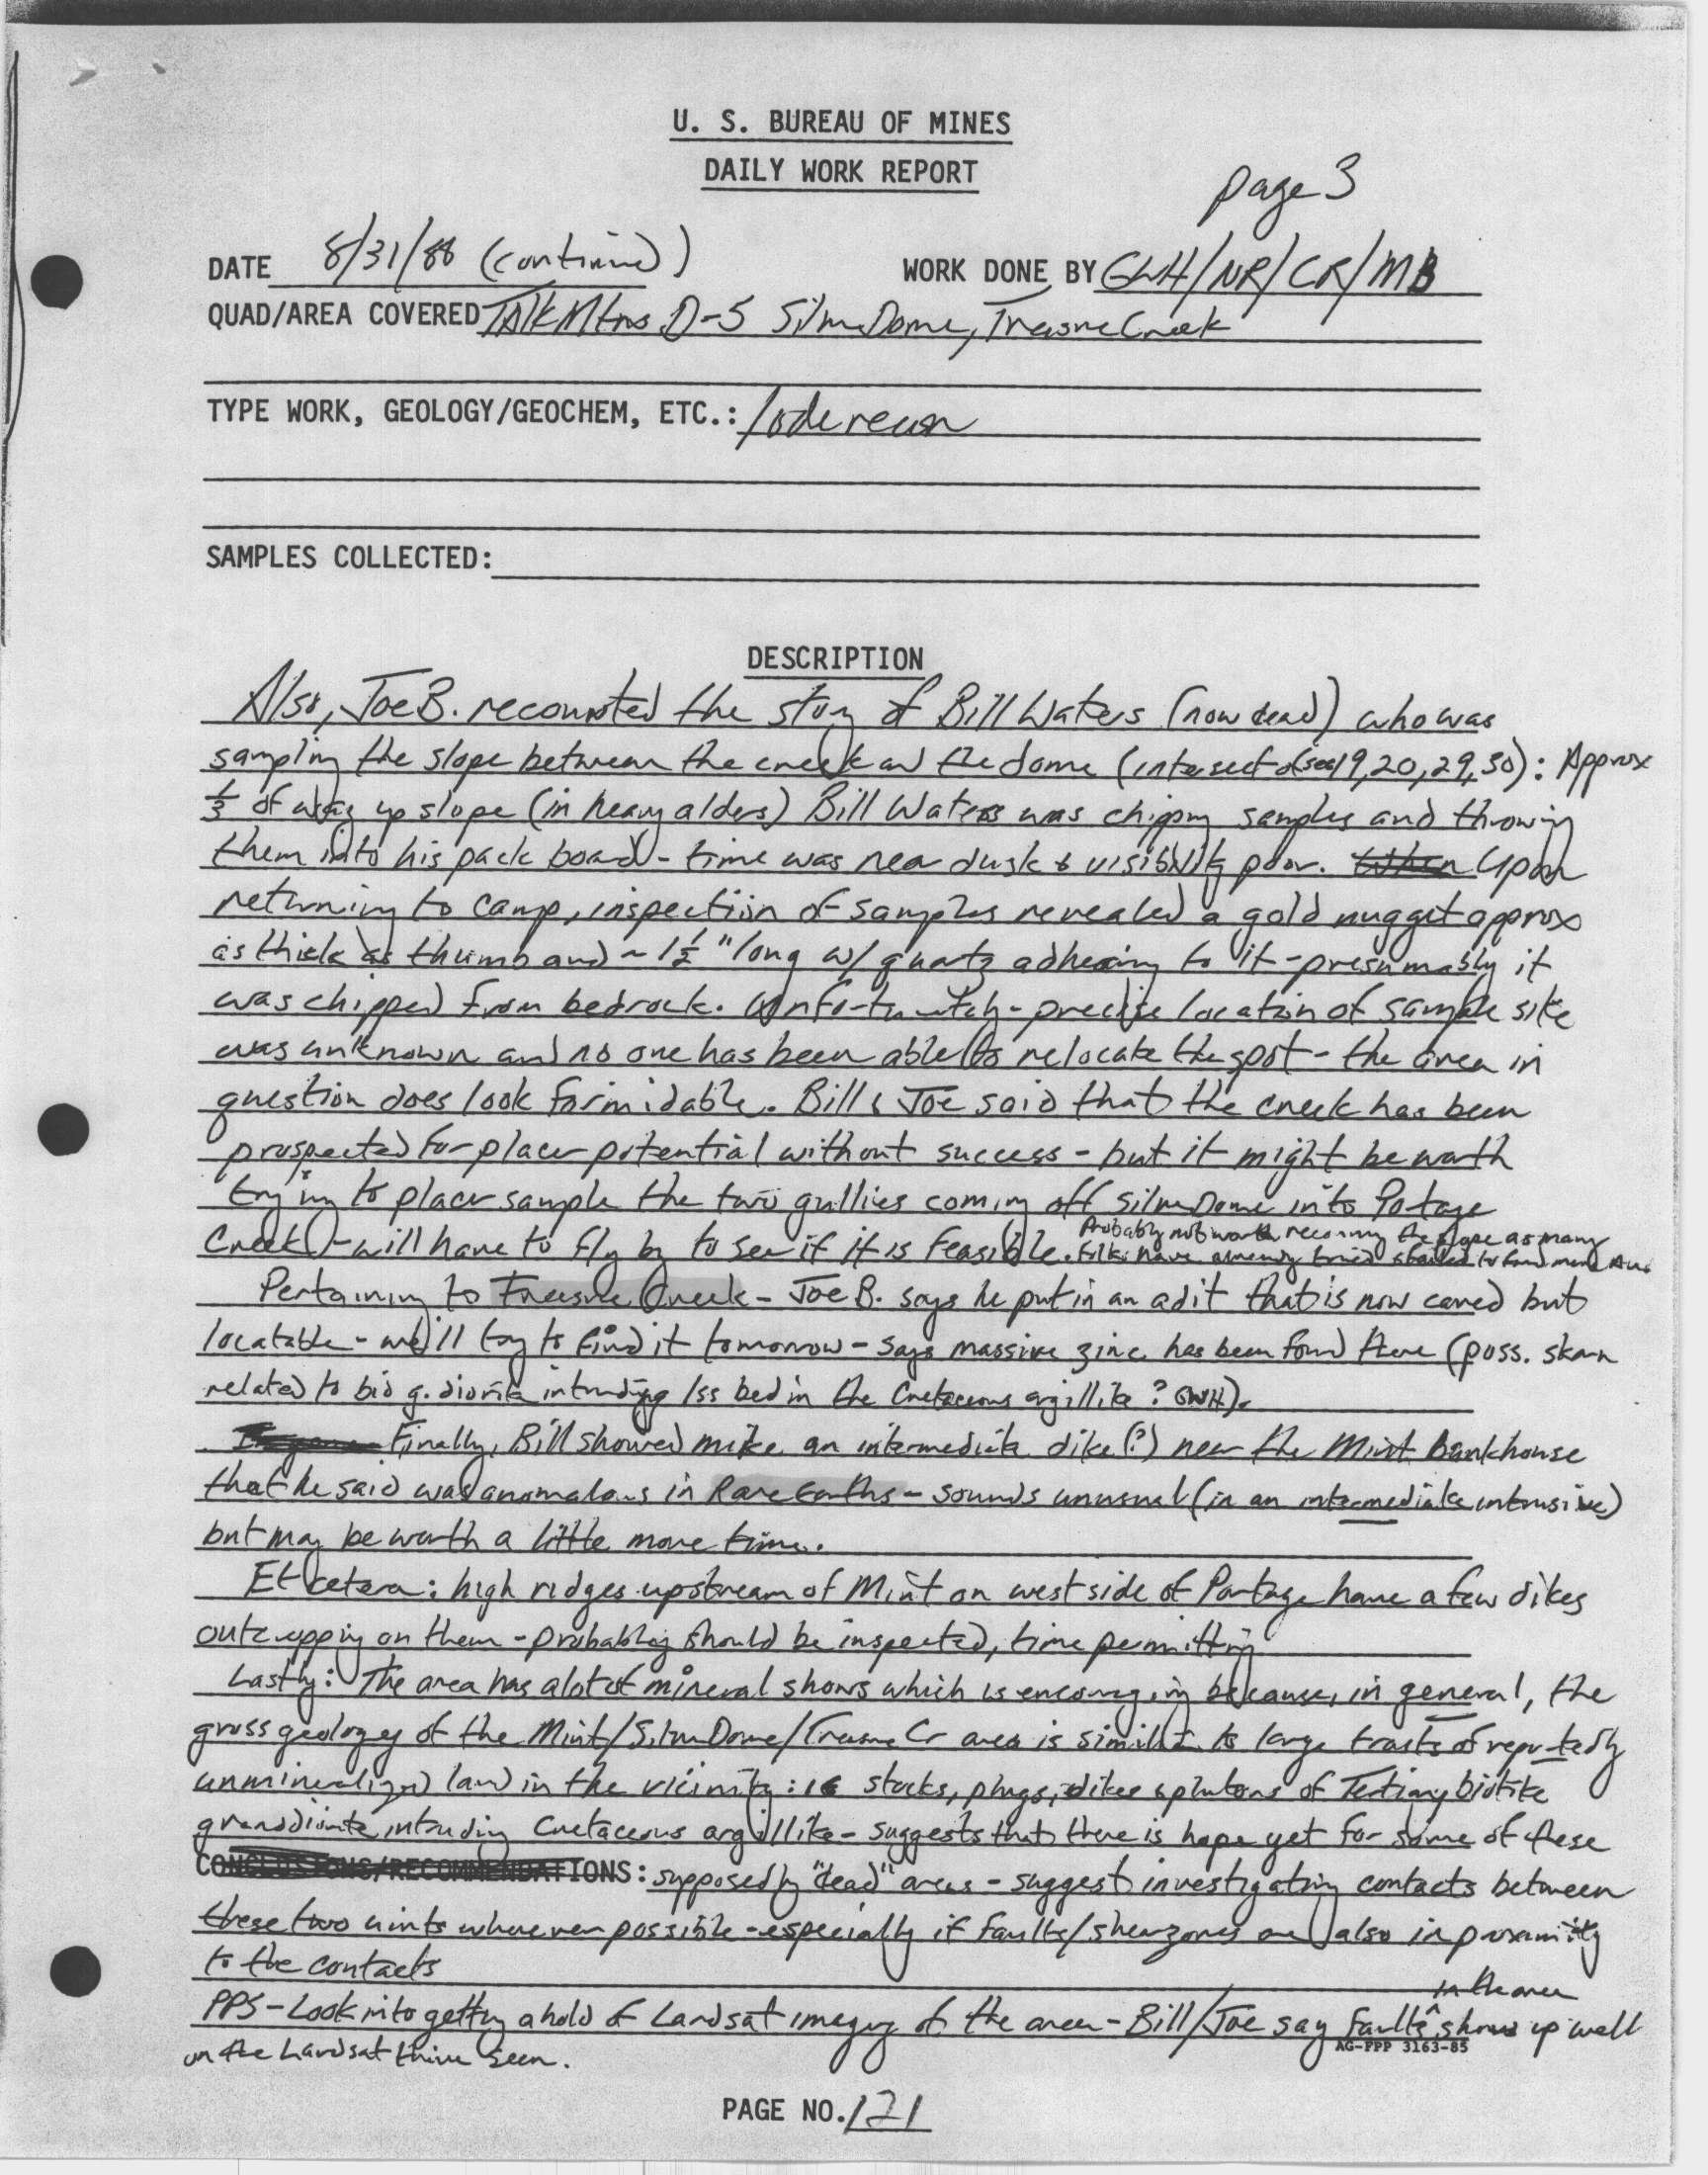 U. S. BUREAU OF MINES
DAILY WORK REPORT
page 3
DATE 8/31/88 (continued) WORK DONE BY GWH/NR/CR/MB
QUAD/AREA COVERED Talk Mtns D-5 Silver Dome, Treasure Creek
TYPE WORK, GEOLOGY/GEOCHEM, ETC.: lode recon
SAMPLES COLLECTED:
DESCRIPTION
Also, Joe B. recounted the story of Bill Waters (now dead) who was
sampling the slope between the creek and the dome (intersect of sec 19, 20, 29, 30): Approx
1/3 of way up slope (in heavy alders) Bill Waters was chipping samples and throwing
them into his pack board - time was near dusk & visibility poor. When Upon
returning to camp, inspection of samples revealed a gold nugget approx
as thick as thumb and ~ 1½" long w/ quartz adhering to it - presumably it
was chipped from bedrock. Unfortunately - precise location of sample site
was unknown and no one has been able to relocate the spot - the area in
question does look formidable. Bill & Joe said that the creek has been
prospected for placer potential without success - but it might be worth
trying to placer sample the two gullies coming off Silver Dome into Portage
Creek - will have to fly by to see if it is feasible. Probably not worth reconning the slope as many
folks have already tried & failed to find more Au.
Pertaining to Treasure Creek - Joe B. says he put in an adit that is now caved but
locatable - we'll try to find it tomorrow - says massive zinc has been found there (poss. skarn
related to bio g. diorite intruding lss bed in the Cretaceous argillite? GWH).
Finally, Bill showed Mike an intermediate dike (?) near the Mint bunkhouse
that he said was anomalous in Rare Earths - sounds unusual (in an intermediate intrusive)
but may be worth a little more time.
Et cetera: high ridges upstream of Mint on west side of Portage have a few dikes
outcropping on them - probably should be inspected, time permitting
Lastly: The area has alot of mineral shows which is encouraging because, in general, the
gross geology of the Mint/Silver Dome/Treasure Cr area is similar to large tracts of reputedly
unmineralized land in the vicinity: ie stocks, plugs, dikes & plutons of Tertiary biotite
granodiorite intruding Cretaceous argillite - suggests that there is hope yet for some of these
CONCLUSIONS/RECOMMENDATIONS: supposedly "dead" areas - suggest investigating contacts between
these two units wherever possible - especially if faults/shear zones are also in proximity
to the contacts
PPS - Look into getting ahold of Landsat imagery of the area - Bill/Joe say faults in the area show up well
on the Landsat they've seen.
AG-FPP 3163-85
PAGE NO. 121